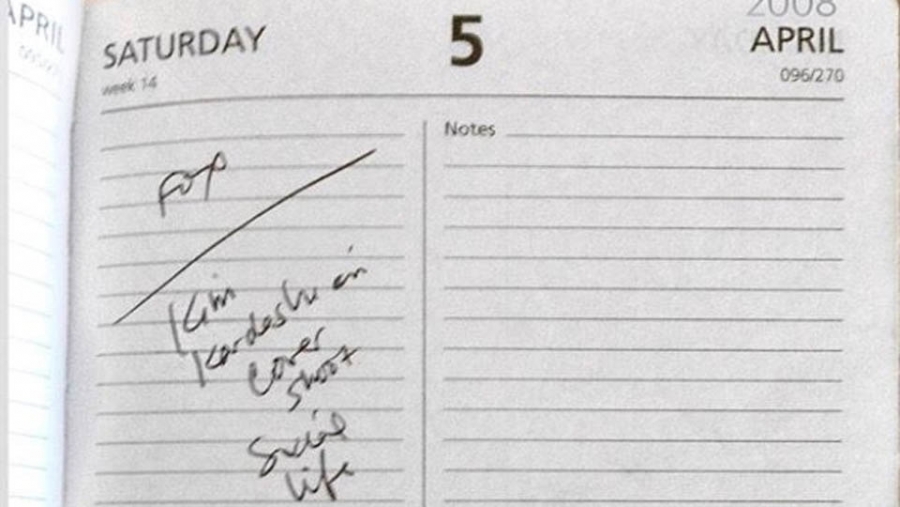 APRIL
2008
SATURDAY
5
APRIL
week 14
096/270
Notes
Kim
Kardashian
cover
shoot
Social
life